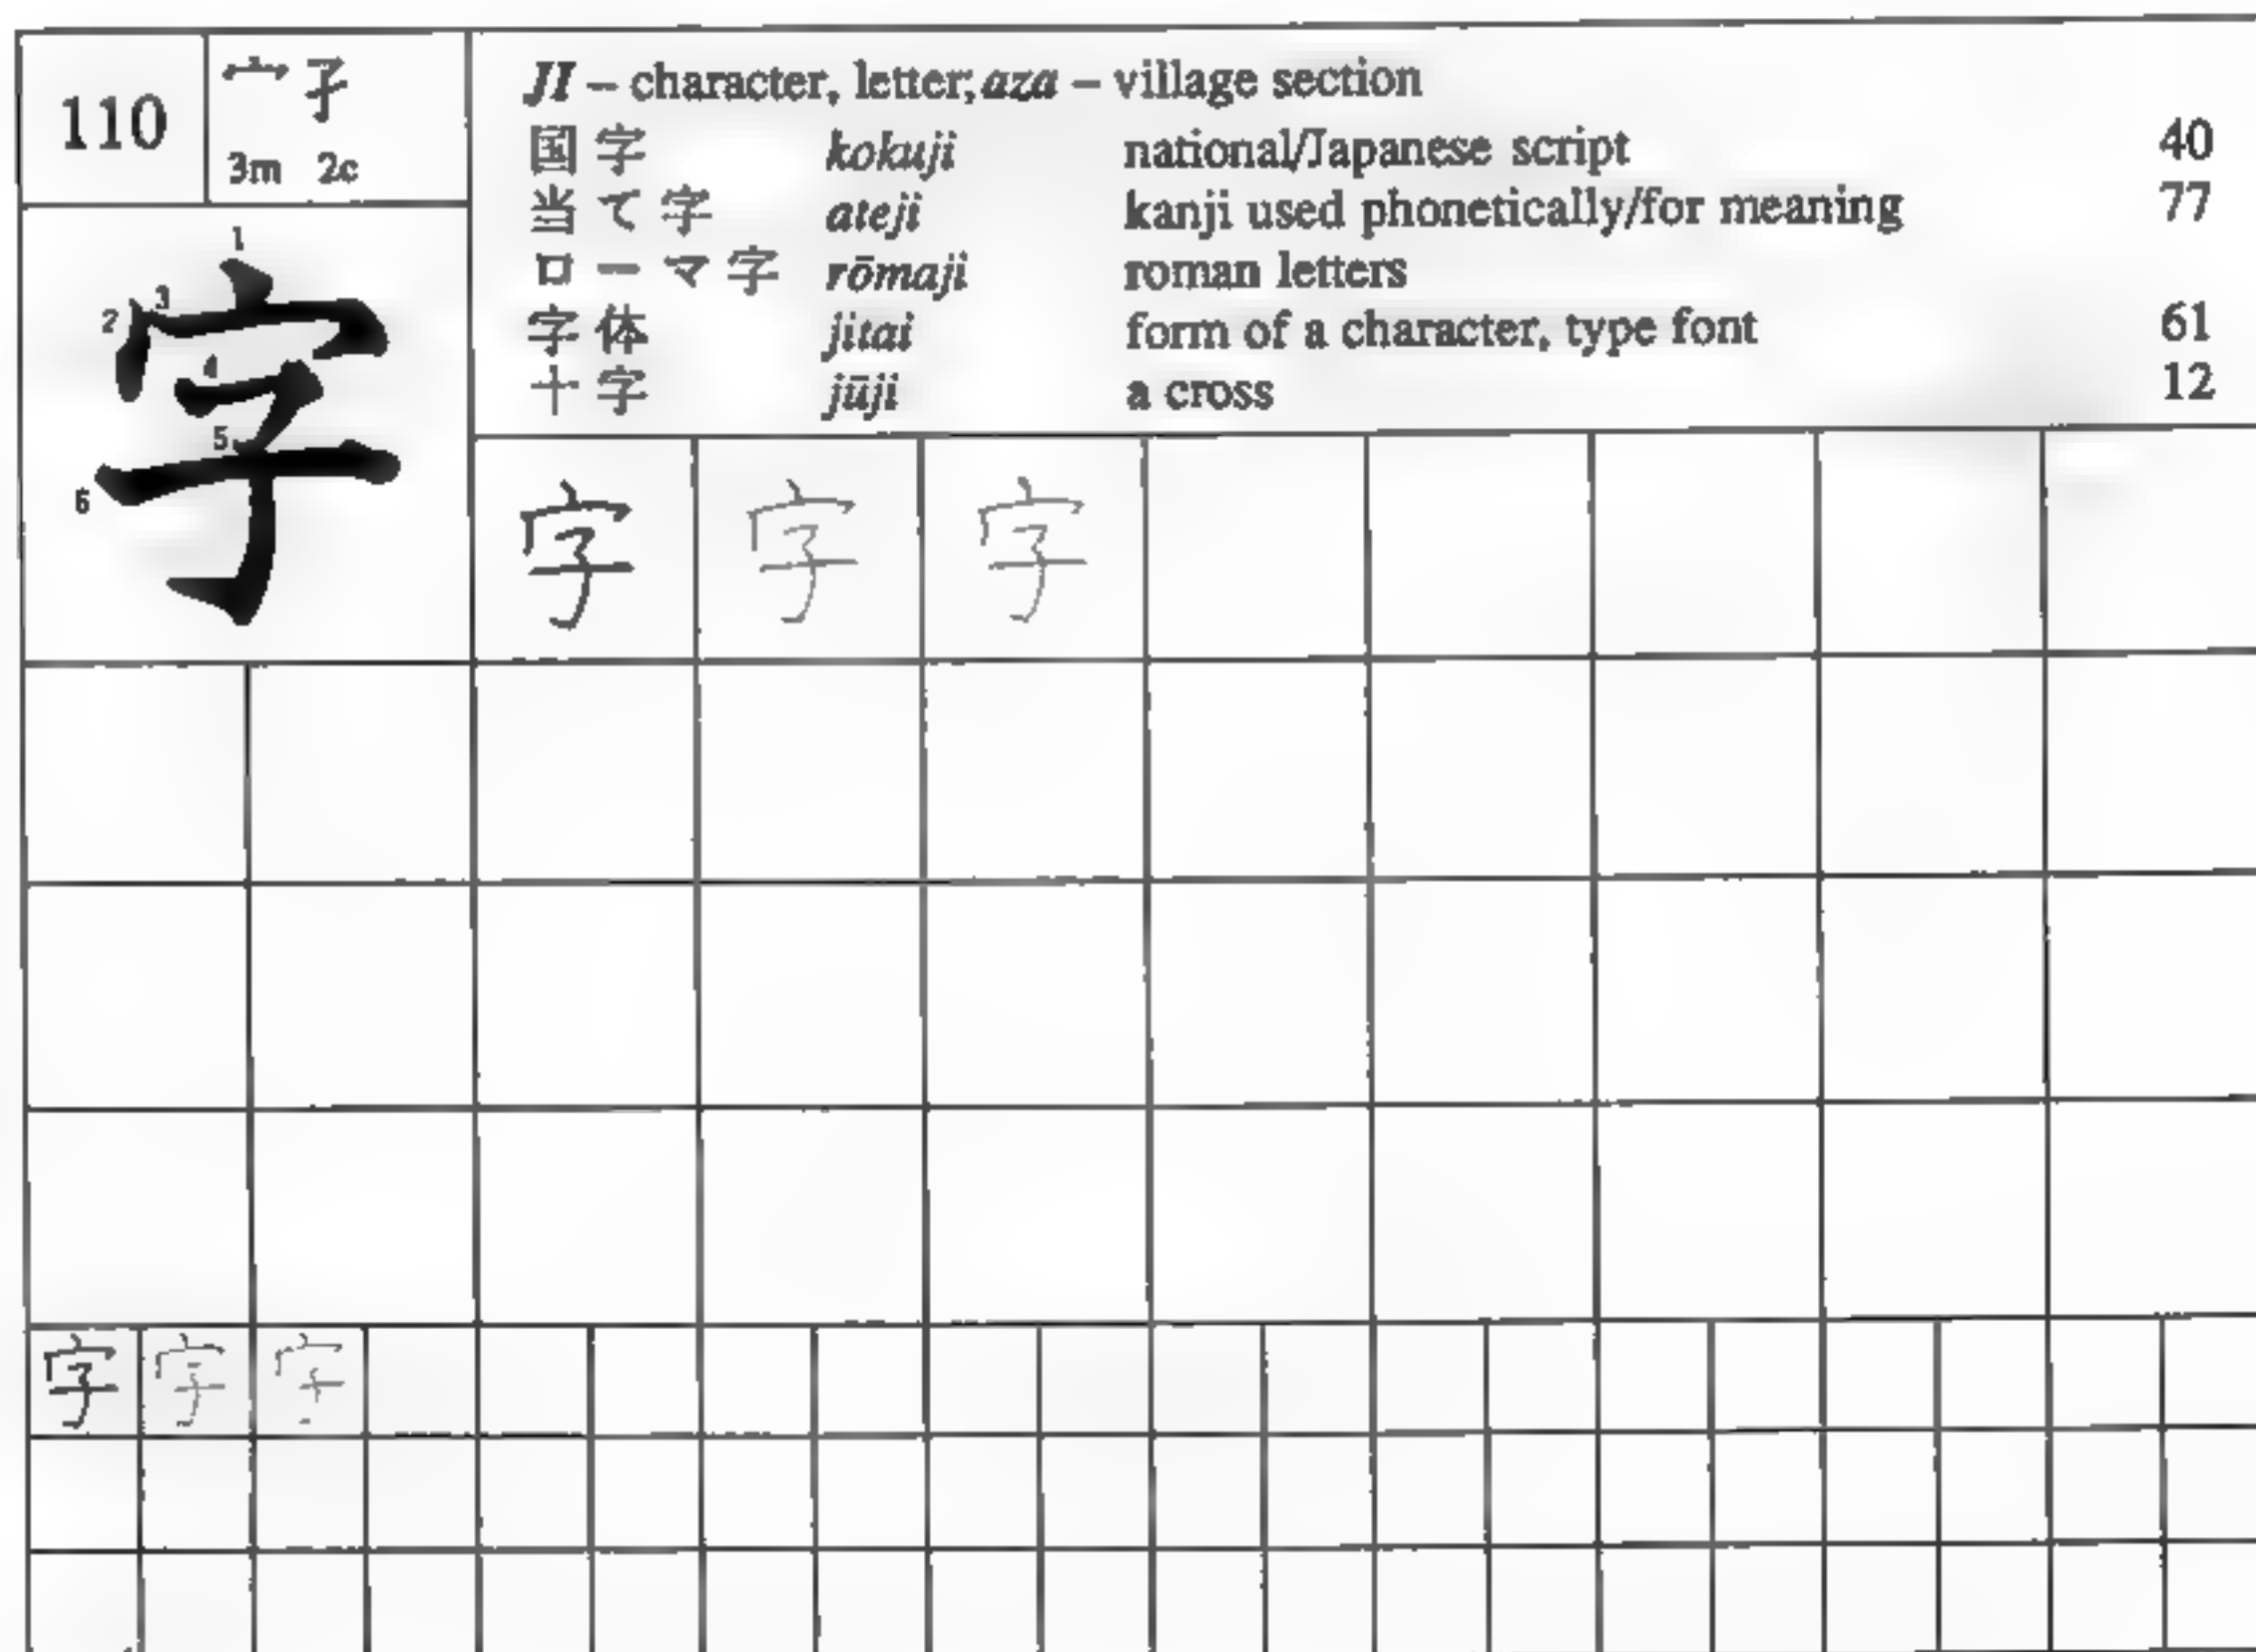 110
宀 子
3m 2c
JI – character, letter; aza – village section
国字 kokuji national/Japanese script 40
当て字 ateji kanji used phonetically/for meaning 77
ローマ字 rōmaji roman letters
字体 jitai form of a character, type font 61
十字 jūji a cross 12
1
2 3
4
5
6
字
字 字 字
字 字 字